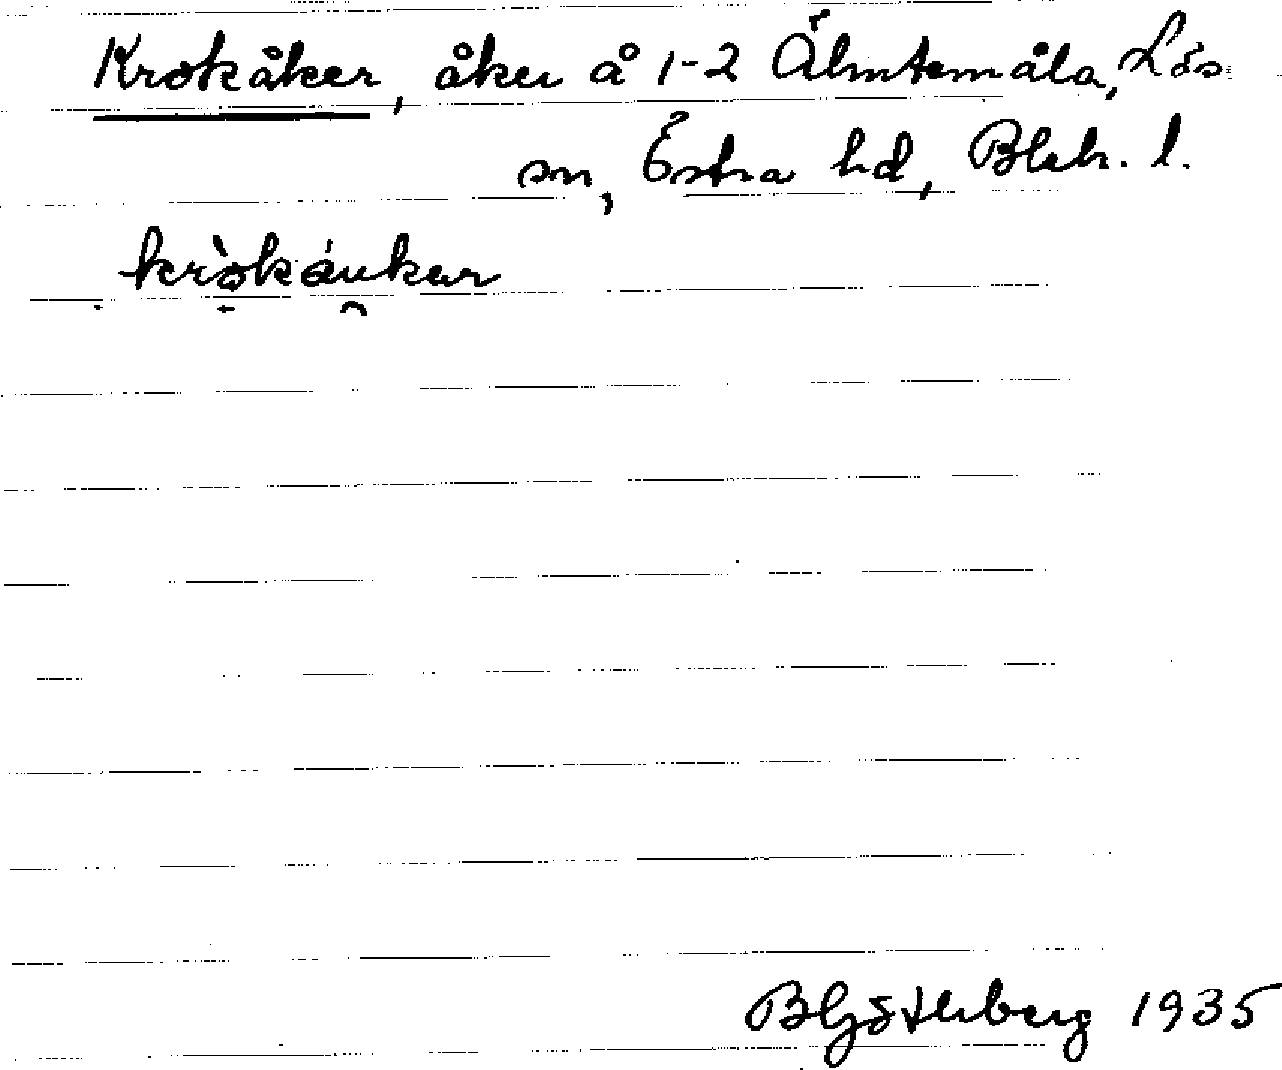 Krokåker, åker å 1-2 Älmtamåla, Lös
sn, Östra hd, Blek. l.
kròkáukar
B Götlberg 1935